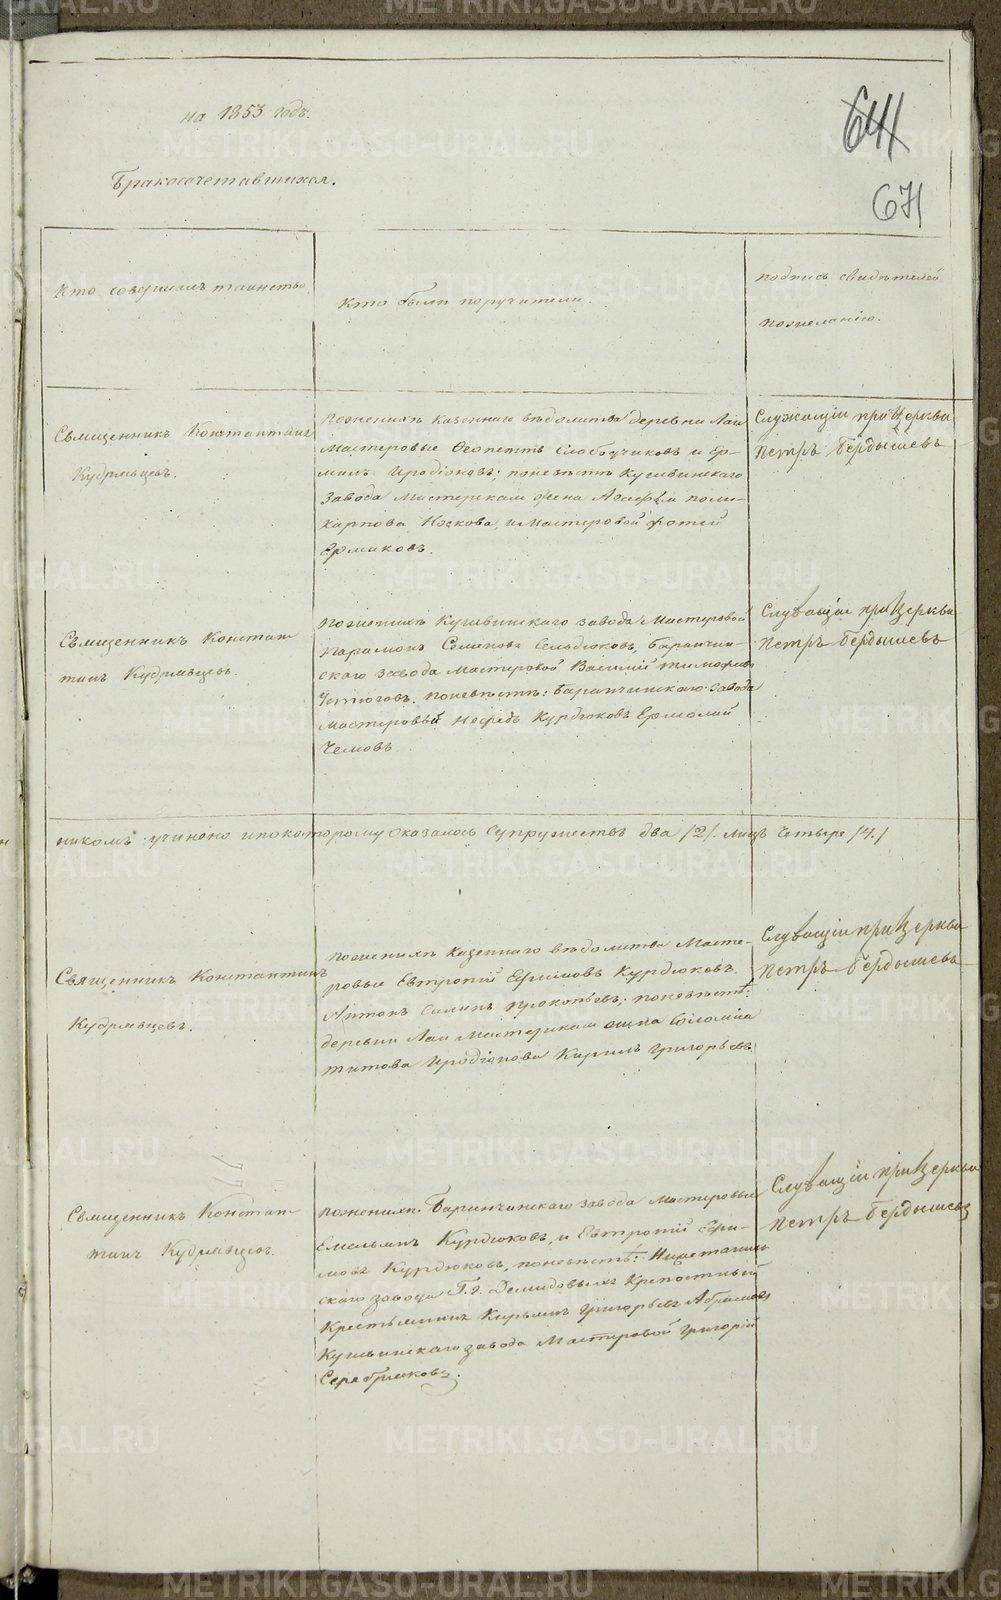 на 1853 годъ.
641
671
Бракосочетавшихся.
Кто совершалъ таинство.
Кто были поручители.
подпись свидѣтелей
пожеланію.
Священникъ Константинъ
Кудрявцевъ.
Поженихѣ Казеннаго вѣдомства деревни Лаи
Мастеровые Слободчиковъ и Ер-
милъ Иродіоновъ; поневѣстѣ Кушвинскаго
Завода Мастерская жена Агафья Поли-
карпова Носкова, и Мастеровой Фотей
Ермаковъ.
Служащій при Церкви
Петръ Бердышевъ
Священникъ Констан-
тинъ Кудрявцевъ.
Поженихѣ Кушвинскаго завода Мастеровой
Парамонъ Баранчин-
скаго завода Мастеровой Василій Тимофѣевъ
Устюговъ. Поневѣстѣ: Баранчинскаго Завода
Мастеровый Нефедъ Курдюковъ Ермолай
Чемовъ
Служащій при Церкви
Петръ Бердышевъ
никомъ учинено ипокоторому оказалось Супружествъ два /2/. лицъ Четыре /4./
Священникъ Константинъ
Кудрявцевъ.
Поженихѣ Казеннаго вѣдомства Масте-
ровые Евтропій Ефимовъ Курдюковъ.
Антонъ Силинъ Прокопьевъ; поневѣстѣ:
деревни Лаи Мастерская жена Соломія
Титова Иродіонова Кирилъ Григорьевъ.
Служащій при Церкви
Петръ Бердышевъ
Священникъ Констан-
тинъ Кудрявцевъ.
поженихѣ. Баранчинскаго завода Мастеровые
Емельянъ Курдюковъ, и Евтропій Ефи-
мовъ Курдюковъ, поневѣстѣ: Нижетагиль-
скаго завода Г.г. Демидовыхъ Крепостный
Крестьянинъ Кирьянъ Григорьевъ Абрамовъ
Кушвинскаго завода Мастеровой Григорій
Серебряковъ.
Служащій при Церкви
Петръ Бердышевъ
METRIKI.GASO-URAL.RU